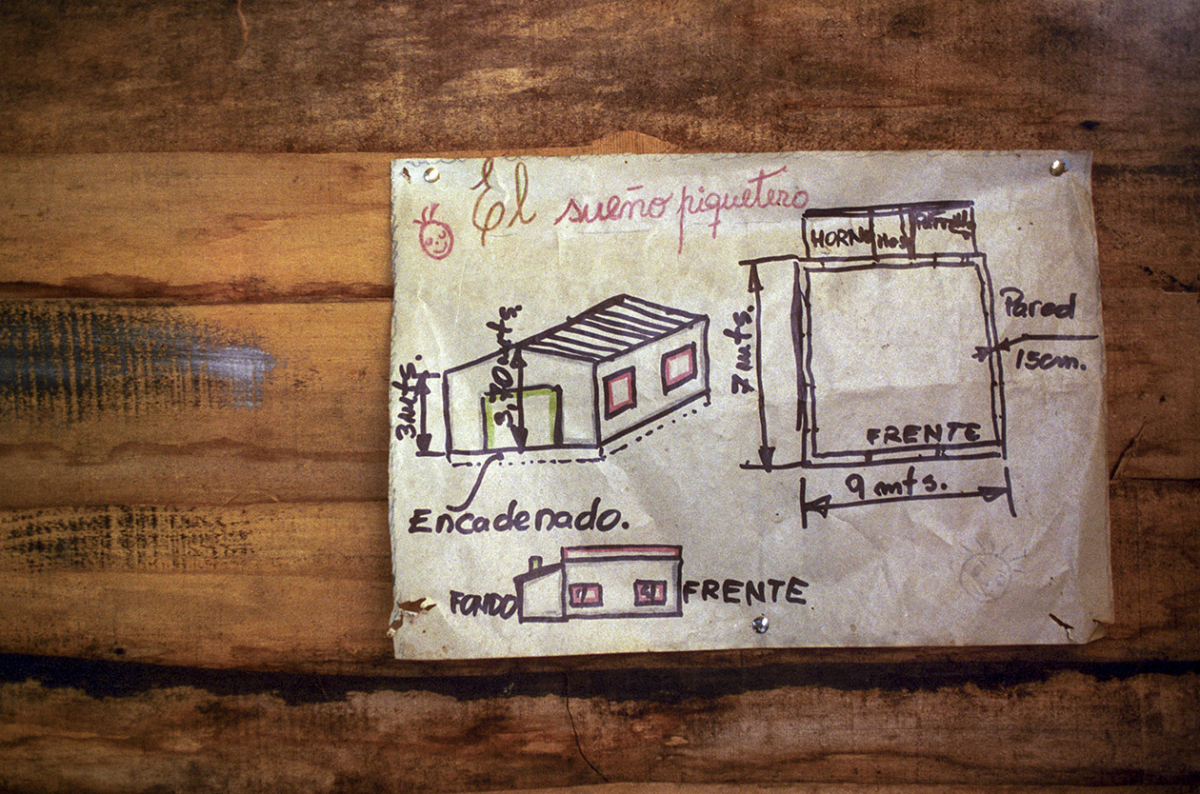 El sueño piquetero
HORNO
Parrilla
3,70 mts.
3 mts.
7 mts.
Pared
15cm.
FRENTE
9 mts.
Encadenado.
FONDO
FRENTE